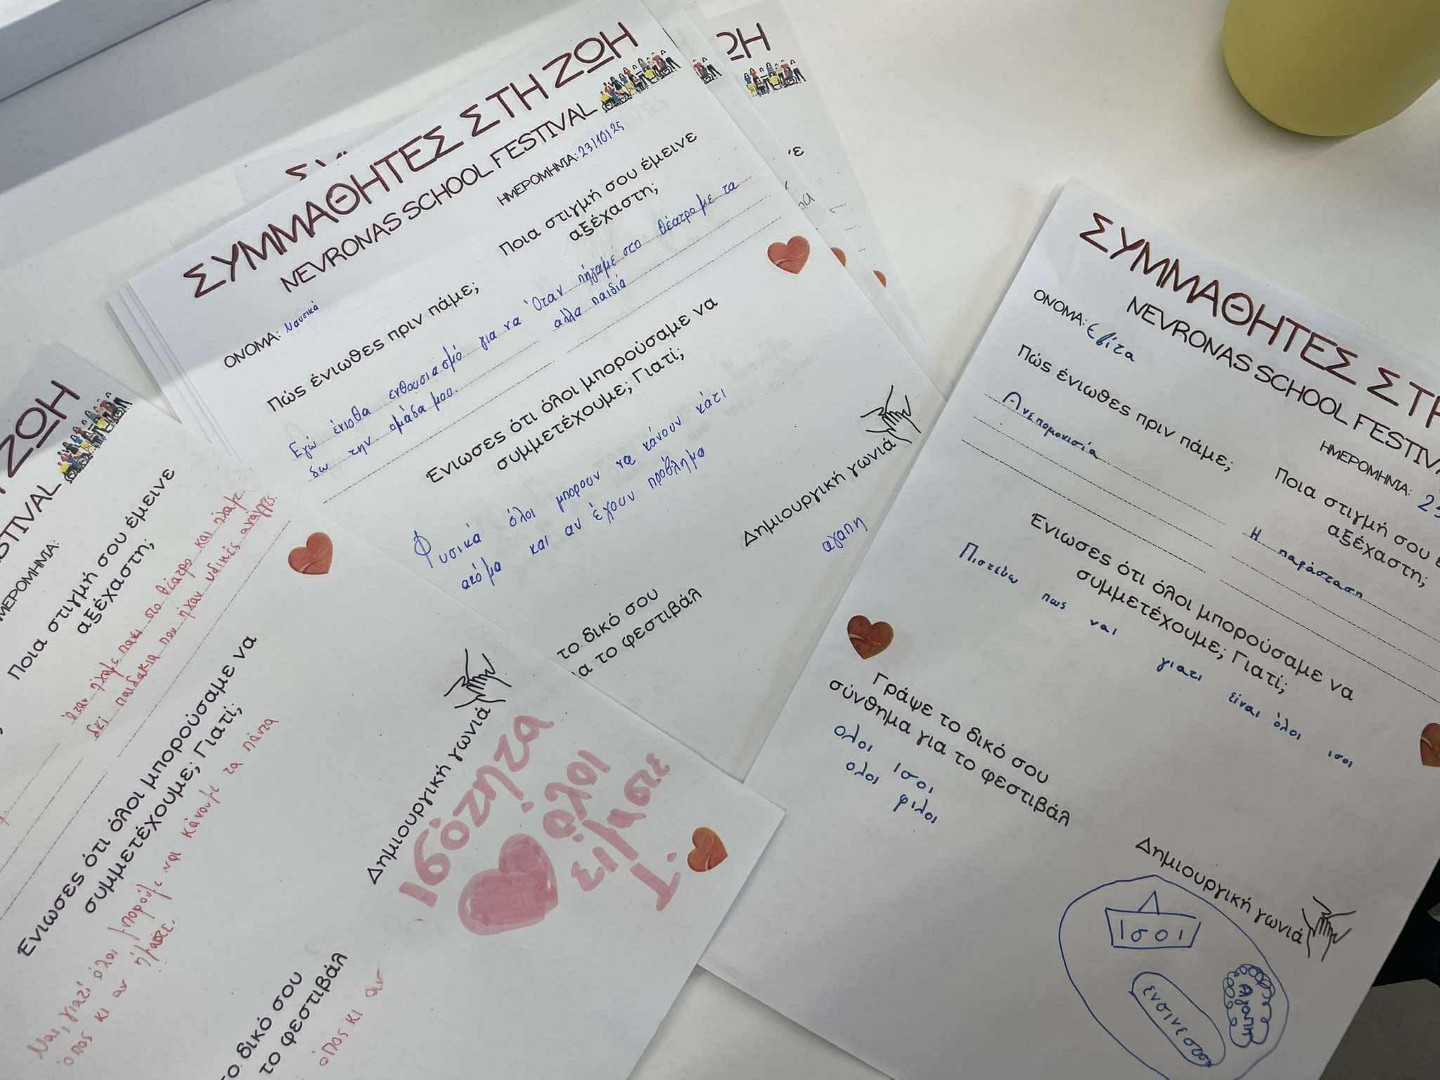 ΣΥΜΜΑΘΗΤΕΣ ΣΤΗ ΖΩΗ
NEVRONAS SCHOOL FESTIVAL
ΟΝΟΜΑ: Ναυσικά
ΗΜΕΡΟΜΗΝΙΑ: 23/10/25
Πώς ένιωθες πριν πάμε;
Εγώ ένιοθα ενθουσιασμό για να
δω την ομάδα μου.
Ποια στιγμή σου έμεινε
αξέχαστη;
Όταν πήγαμε στο θέατρο με τα
αλλα παιδιά
Ένιωσες ότι όλοι μπορούσαμε να
συμμετέχουμε; Γιατί;
Φυσικά όλοι μπορουν να κάνουν κάτι
ατόμα και αν έχουν πρόβλημα
Δημιουργική γωνιά
αγαπη
το δικό σου
α το φεστιβάλ
ΩΗ
ΖΩΗ
STIVAL
ΗΜΕΡΟΜΗΝΙΑ:
Ποια στιγμή σου έμεινε
αξέχαστη;
όταν πήγαμε πάσι στο θέατρο και
παιδάκια που ήχαν
Ένιωσες ότι όλοι μπορούσαμε να
συμμετέχουμε; Γιατί;
Ναι, γιατί όλοι μπορούμε να κάνουμε τα πάντα
όπος κι αν ήμαστε
Δημιουργική γωνιά
ισότητα
το δικό σου
το φεστιβάλ
όπος κι αν
ΣΥΜΜΑΘΗΤΕΣ ΣΤ
NEVRONAS SCHOOL FESTIVA
ΟΝΟΜΑ: Εβίτα
ΗΜΕΡΟΜΗΝΙΑ: 23
Πώς ένιωθες πριν πάμε;
Ανεπομονισία
Ποια στιγμή σου έ
αξέχαστη;
Η παράσταση
Ένιωσες ότι όλοι μπορούσαμε να
συμμετέχουμε; Γιατί;
Πιστεύω πως ναι γιατι είναι όλοι ισοι
Γράψε το δικό σου
σύνθημα για το φεστιβάλ
ολοι ισοι
ολοι φιλοι
Δημιουργική γωνιά
ισοι
Αγαπη